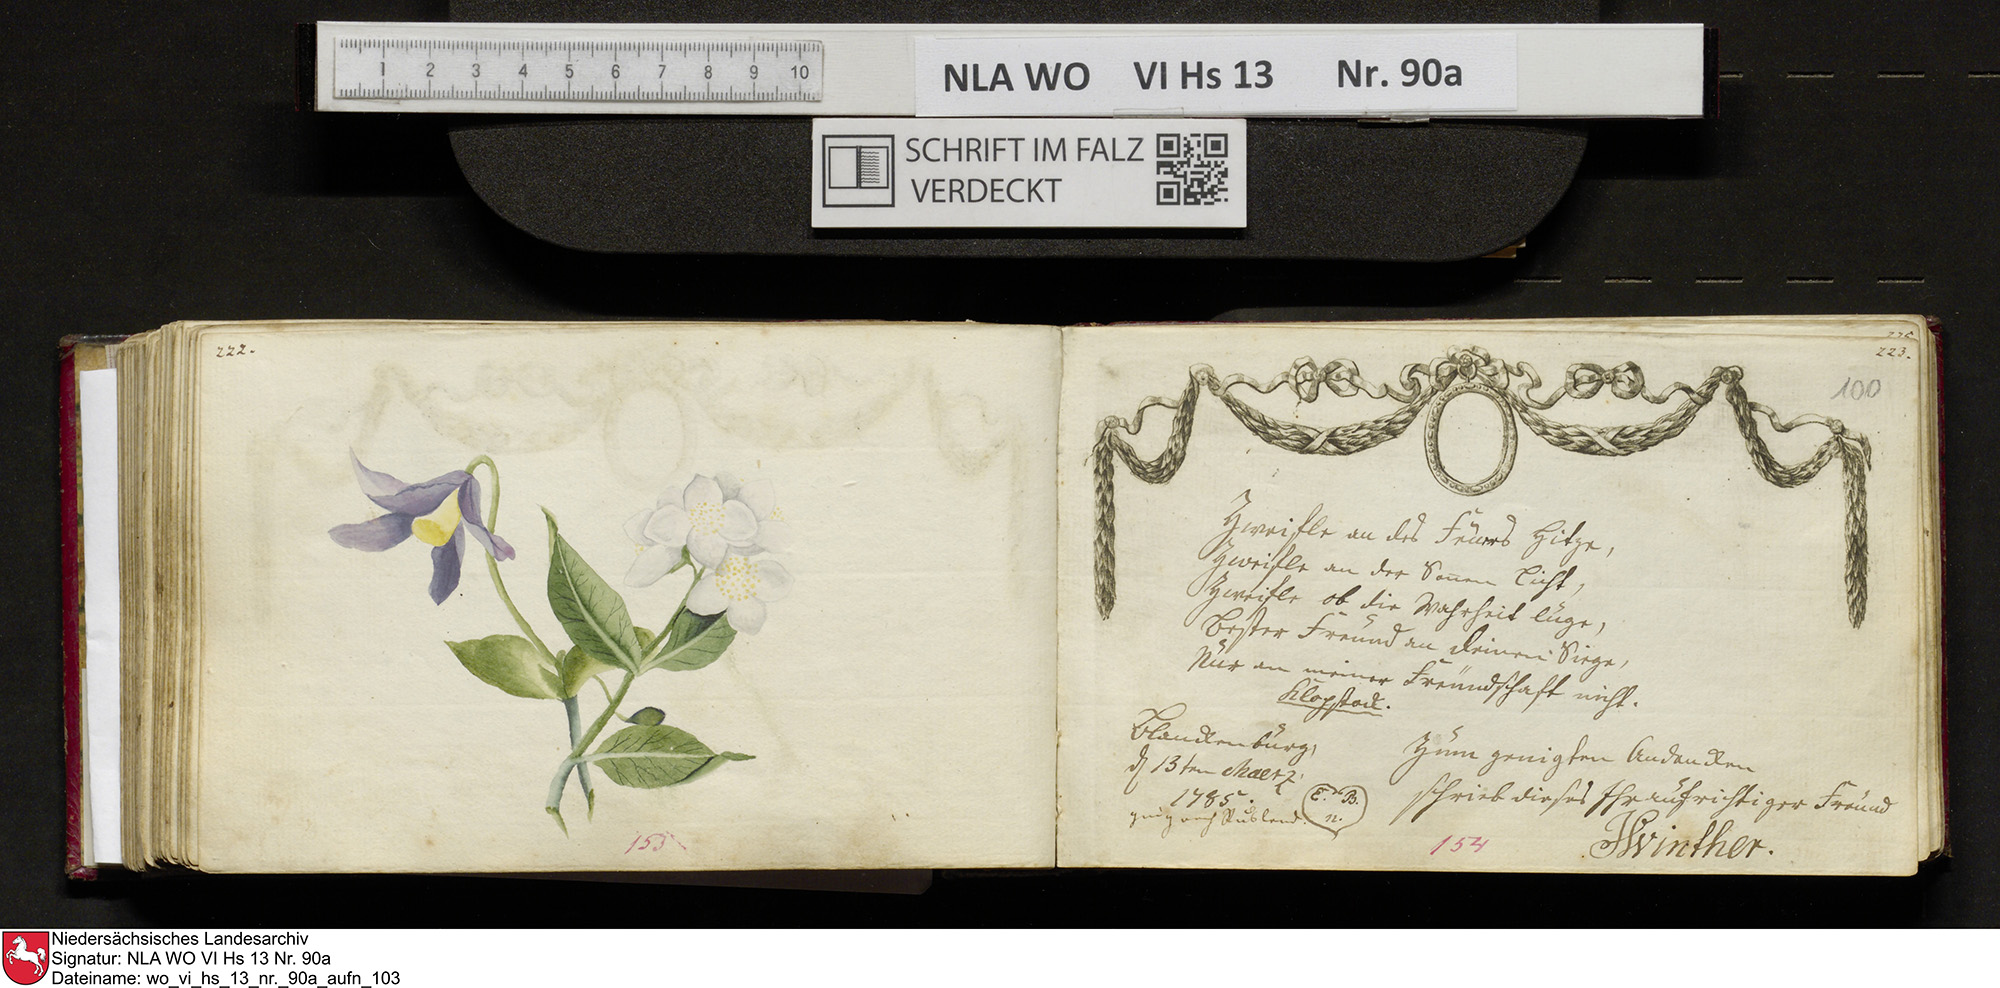 1 2 3 4 5 6 7 8 9 10
NLA WO VI Hs 13 Nr. 90a
SCHRIFT IM FALZ
VERDECKT
222.
223.
100
Zweifle an des Feüers Hitze,
Zweifle an der Sonnen Licht,
Zweifle ob die Wahrheit lüge,
Bester Freünd an Deinem Siege,
Nür an meiner Freündschaft nicht.
Klopstock.
Blanckenbürg,
d 13ten Maertz
1785.
Züm geneigten Andencken
schrieb dieses Ihr aüfrichtiger Freünd
Winther.
153
154
Niedersächsisches Landesarchiv
Signatur: NLA WO VI Hs 13 Nr. 90a
Dateiname: wo_vi_hs_13_nr._90a_aufn_103